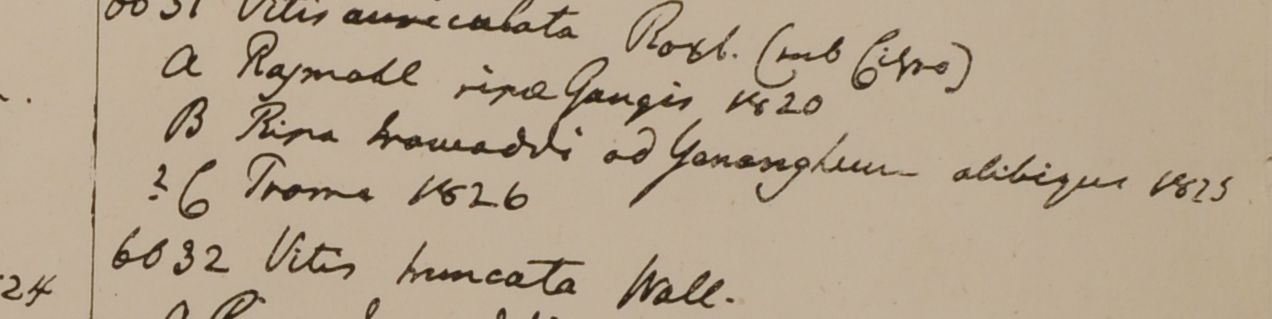 6031 Vitis auriculata Roxb. (sub Cisso)
A Rajmahl ripa Gangis 1820
B Ripa Irawaddi ad Yenangheum alibique 1825
? C Trome 1826
24
6032 Vitis truncata Wall.